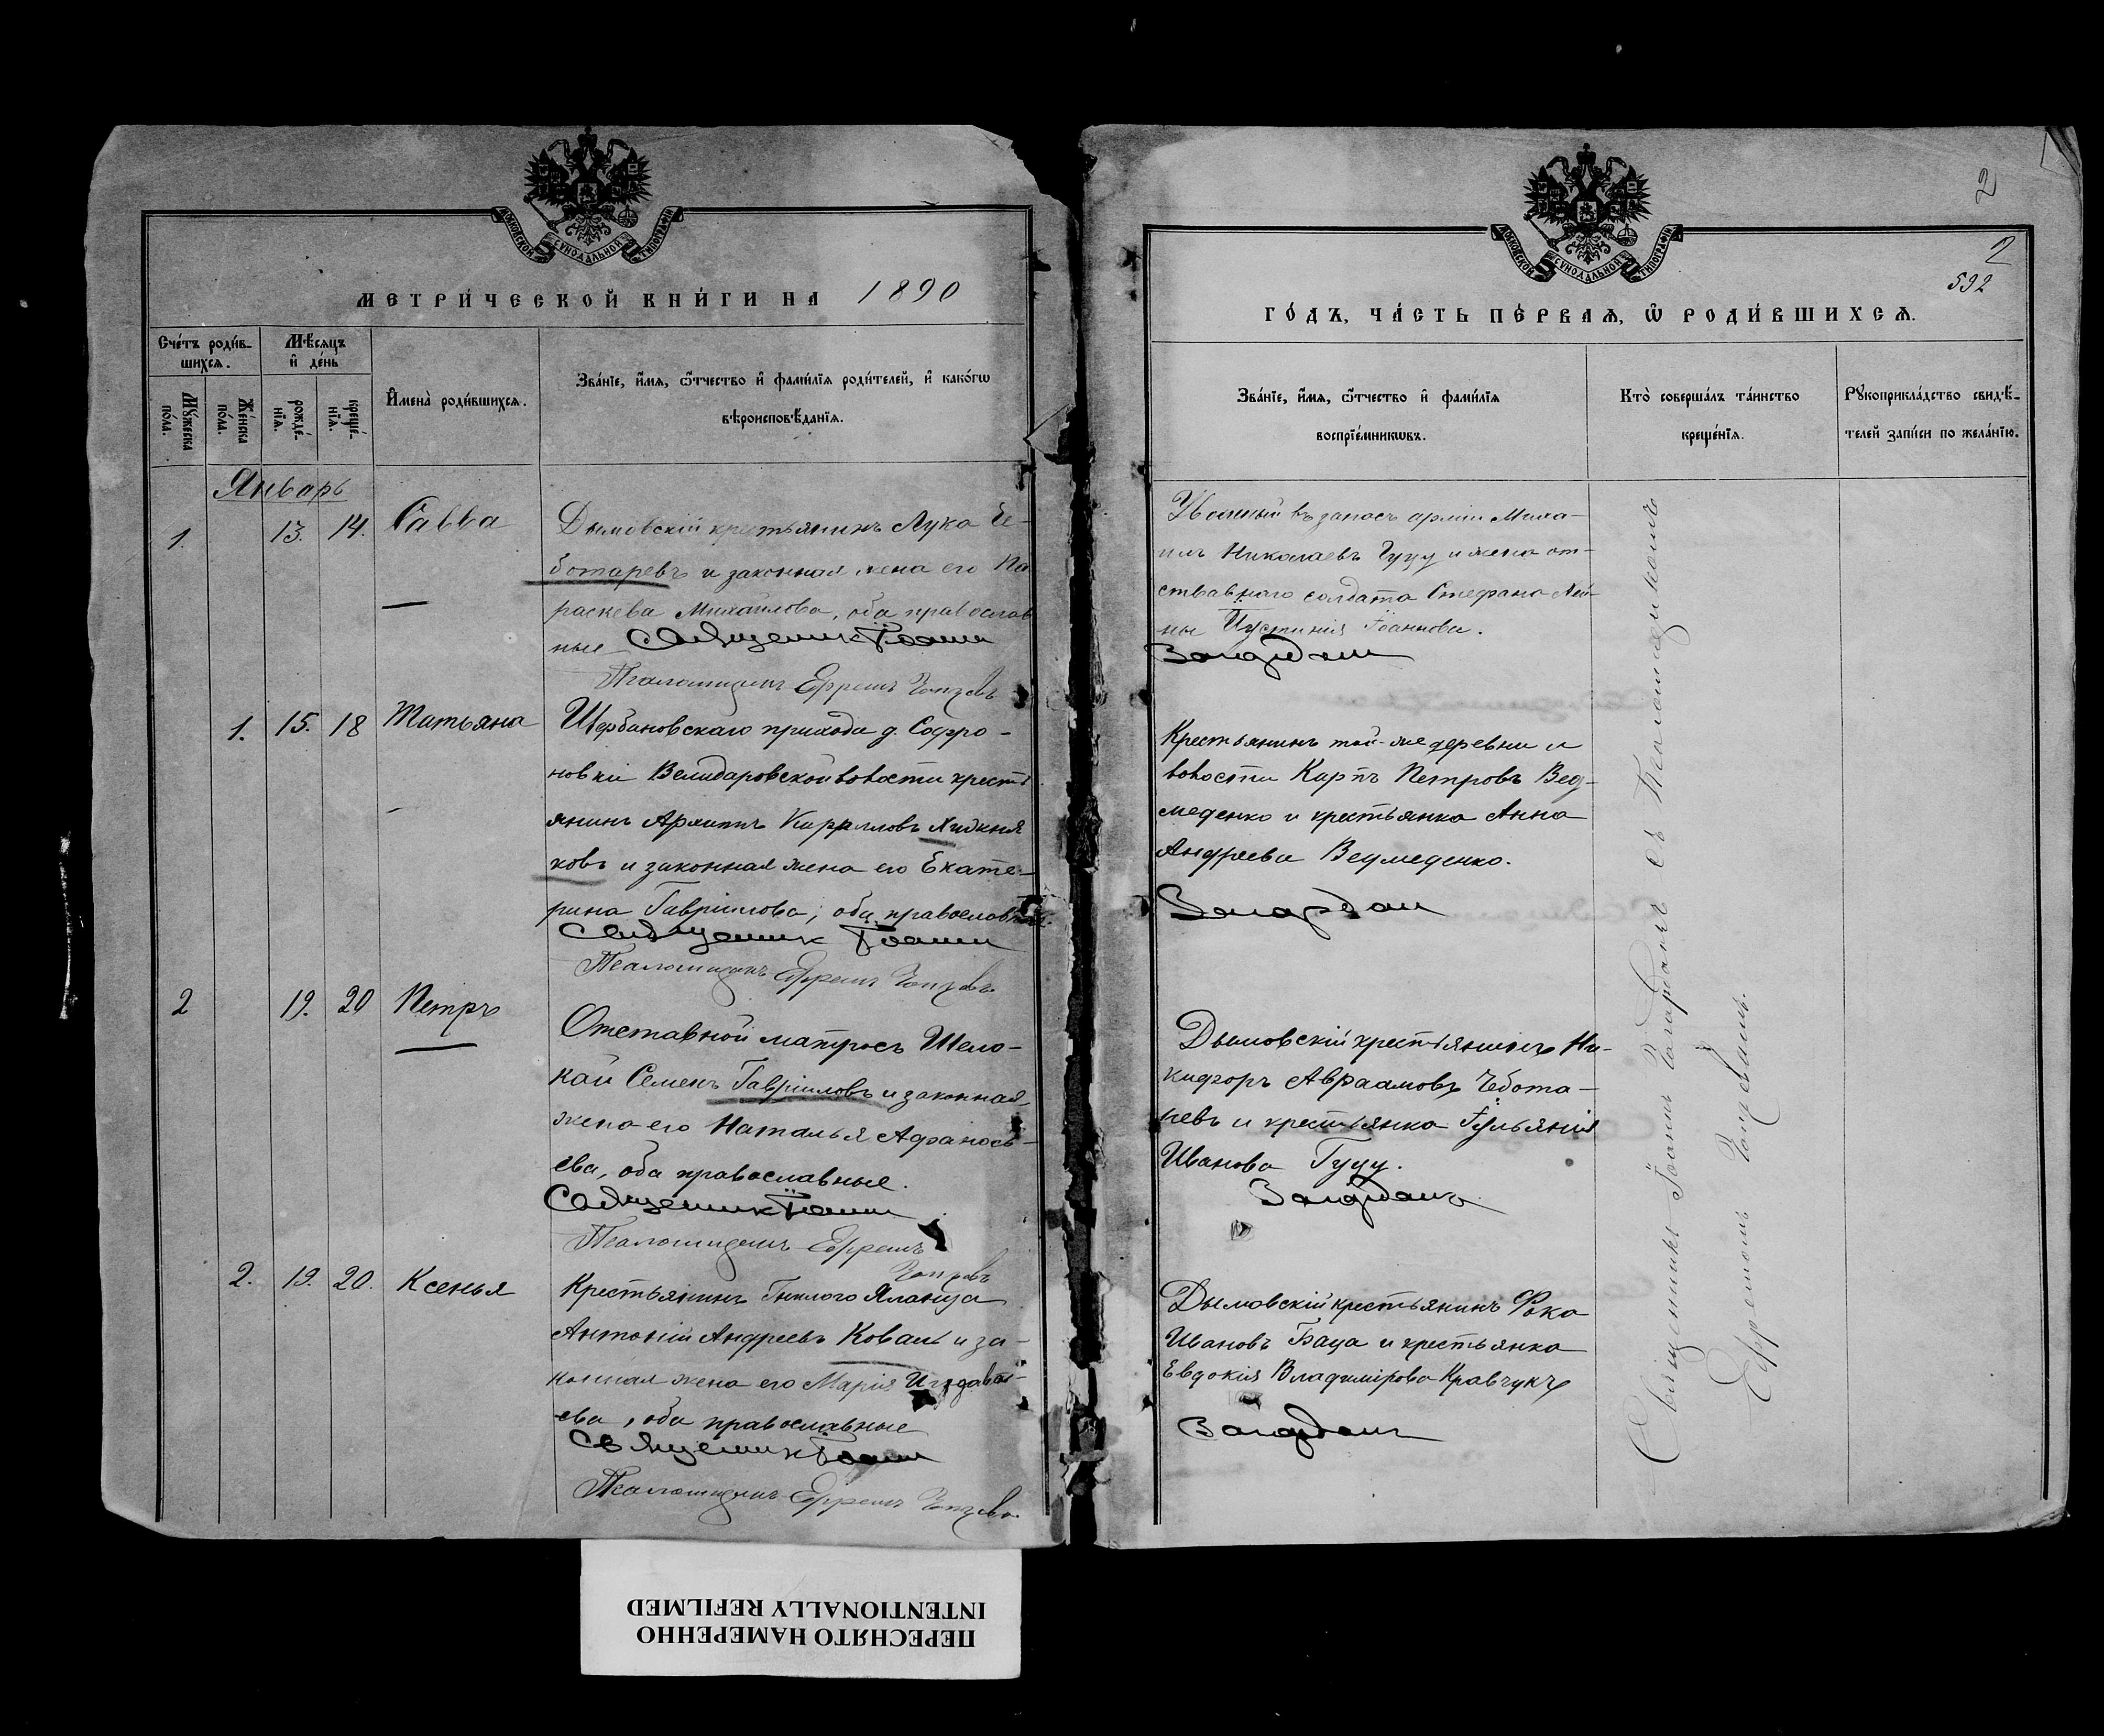 МОСКОВСКОЙ СѴНОДАЛЬНОЙ ТИПОГРАФІИ
МЕТРИ́ЧЕСКОЙ КНИ́ГИ НА 1890
Сче́тъ роди́в-
шихсѧ.
Мѣ́сѧцъ
и҆ де́нь
Мꙋ́жеска
по́ла.
Же́нска
по́ла.
рожде́-
нїѧ.
креще́-
нїѧ.
И҆мена̀ роди́вшихсѧ.
Зва́нїе, и҆́мѧ, ѻ҆́тчество и҆ фами́лїѧ роди́телей, и҆ како́гѡ
вѣроисповѣ́данїѧ.
Январь
1. 13. 14. Савва
Дымовскій крестьянинъ Лука Че-
ботаревъ и законная жена его Па
раскева Михайлова, оба православ
ные Священник Іоанн
Псаломщикъ Ефремъ
1. 15. 18 Татьяна
Щербановскаго прихода д. Софро-
новки Велидаровской волости кресть
янинъ Архипъ Кирилловъ Хидкня
ковъ и законная жена его Екате-
рина Гавріилова, оба православные.
Священник Іоанн
Псаломщикъ Ефремъ
2 19. 20 Петръ
Отставной матросъ Шело-
кай Семенъ Гавріиловъ и законная
жена его Наталья Афанась-
ева, оба православные.
Священник Іоанн
Псаломщикъ Ефремъ
2. 19. 20. Ксенья
Крестьянинъ Гнилого Яланца
Антоній Андреевъ Коваль и за-
конная жена его Марія
ева, оба православные
Священник Іоанн
Псаломщикъ Ефремъ
2
2
592
МОСКОВСКОЙ СѴНОДАЛЬНОЙ ТИПОГРАФІИ
ГО́ДЪ, ЧА́СТЬ ПЕ́РВАѦ, Ѡ҆ РОДИ́ВШИХСѦ.
Зва́нїе, и҆́мѧ, ѻ҆́тчество и҆ фами́лїѧ
воспрїе́мникѡвъ.
Кто̀ соверша́лъ та́инство
креще́нїѧ.
Рꙋкоприкла́дство свидѣ́-
телей за́писи по жела́нїю.
въ запасъ арміи Миха-
илъ Николаевъ Гуцу и жена от-
ставнаго солдата Стефана
Іустинія Іоаннова.
Крестьянинъ той-же деревни и
волости Карпъ Петровъ Вед-
меденко и крестьянка Анна
Андреева Ведмеденко.
Дымовскій крестьянинъ Ни-
кифоръ Авраамовъ Чебота-
ревъ и крестьянка Іульянія
Иванова Гуцу.
Дымовскій крестьянинъ Фока
Ивановъ Баца и крестьянка
Евдокія Владимірова Кравчукъ
Священникъ Іоаннъ съ Псаломщикомъ
Ефремомъ
ПЕРЕСНЯТО НАМЕРЕННО
INTENTIONALLY REFILMED